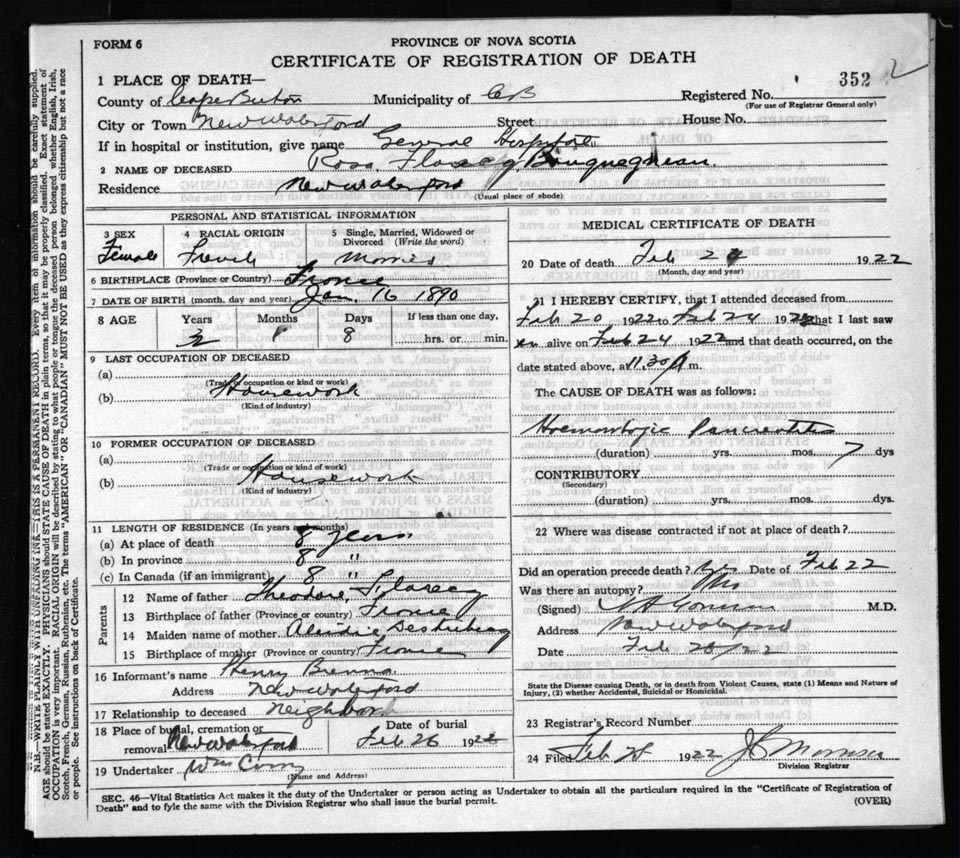 FORM 6
PROVINCE OF NOVA SCOTIA
CERTIFICATE OF REGISTRATION OF DEATH
352 2
1 PLACE OF DEATH—
County of Cape Breton Municipality of CB Registered No.
(For use of Registrar General only)
City or Town New Waterford Street House No.
If in hospital or institution, give name General Hospital
2 NAME OF DECEASED Rosa
Residence New Waterford
(Usual place of abode)
PERSONAL AND STATISTICAL INFORMATION
3 SEX 4 RACIAL ORIGIN 5 Single, Married, Widowed or Divorced (Write the word)
Female French Married
6 BIRTHPLACE (Province or Country) France
7 DATE OF BIRTH (month, day and year) Jan. 16 1890
8 AGE Years Months Days If less than one day,
8 hrs. or min.
9 LAST OCCUPATION OF DECEASED
(a)
(Trade or occupation or kind or work)
(b) Housework
(Kind of industry)
10 FORMER OCCUPATION OF DECEASED
(a)
(Trade or occupation or kind or work)
(b) Housework
(Kind of industry)
11 LENGTH OF RESIDENCE (In years and months)
(a) At place of death 8 years
(b) In province 8 "
(c) In Canada (if an immigrant) 8 "
Parents
12 Name of father Theodore
13 Birthplace of father (Province or country) France
14 Maiden name of mother
15 Birthplace of mother (Province or country) France
16 Informant's name Henry
Address New Waterford
17 Relationship to deceased Neighbor
18 Place of burial, cremation or removal New Waterford Date of burial Feb 26 1922
19 Undertaker Wm
(Name and Address)
MEDICAL CERTIFICATE OF DEATH
20 Date of death Feb 24 1922
(Month, day and year)
21 I HEREBY CERTIFY, that I attended deceased from
Feb 20 1922 to Feb 24 1922 that I last saw
alive on Feb 24 1922 and that death occurred, on the
date stated above, at 11.30 m.
The CAUSE OF DEATH was as follows:
Haemorrhagic Pancreatitis
(duration) yrs. mos. 7 dys
CONTRIBUTORY
(Secondary)
(duration) yrs. mos. dys.
22 Where was disease contracted if not at place of death?
Did an operation precede death? Yes Date of Feb 22
Was there an autopsy?
(Signed) M.D.
Address New Waterford
Date Feb /22
State the Disease causing Death, or in death from Violent Causes, state (1) Means and Nature of
Injury, (2) whether Accidental, Suicidal or Homicidal.
23 Registrar's Record Number
24 Filed Feb 1922 Morrison
Division Registrar
SEC. 46—Vital Statistics Act makes it the duty of the Undertaker or person acting as Undertaker to obtain all the particulars required in the "Certificate of Registration of
Death" and to fyle the same with the Division Registrar who shall issue the burial permit.
(OVER)
N.B.—WRITE PLAINLY WITH UNFADING INK—THIS IS A PERMANENT RECORD. Every item of information should be carefully supplied.
AGE should be stated EXACTLY. PHYSICIANS should STATE CAUSE OF DEATH in plain terms, so that it may be properly classified. Exact statement of
OCCUPATION is very important. RACIAL ORIGIN will be described by stating to what people or tongue the deceased person belonged whether English, Irish,
Scotch, French, German, Russian, Ruthenian, etc. The terms "AMERICAN" OR "CANADIAN" MUST NOT BE USED as they express citizenship but not a race
or people. See instructions on back of Certificate.